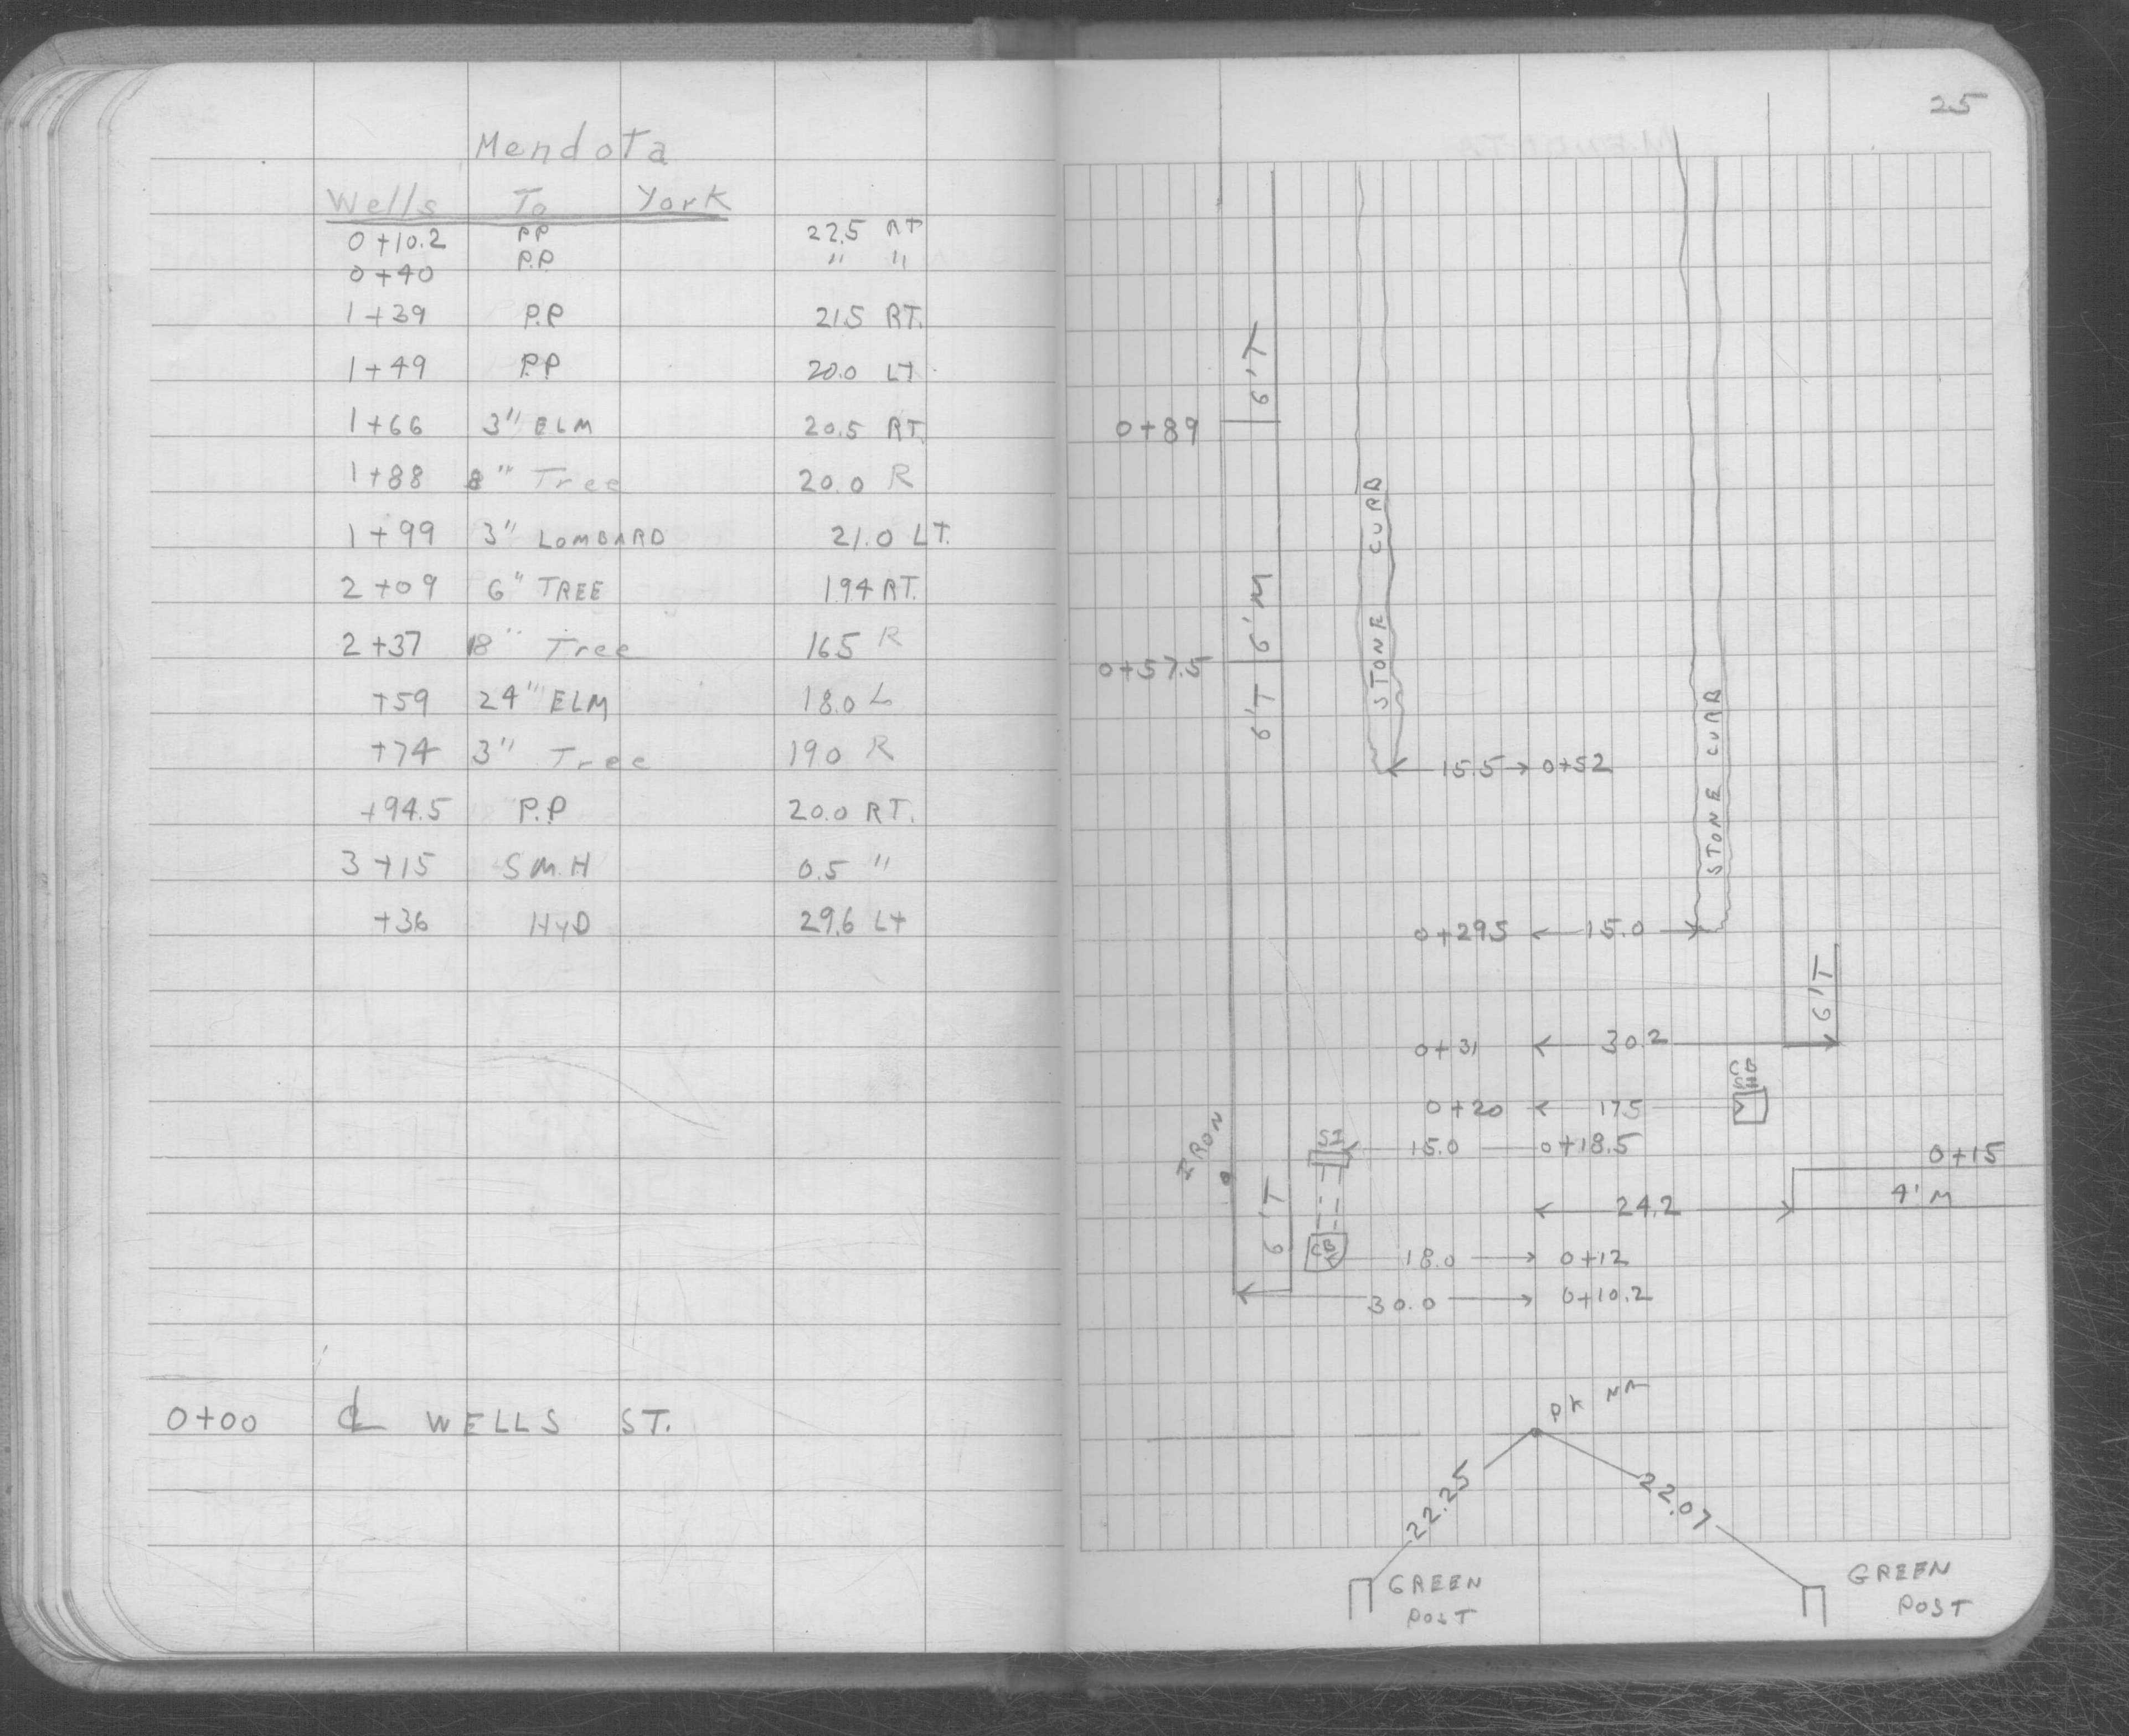 Mendota
Wells To York
0+10.2 PP 22.5 RT
0+40 P.P " "
1+39 P.P 21.5 RT.
1+49 P.P 20.0 LT
1+66 3" ELM 20.5 RT.
1+88 8" Tree 20.0 R
1+99 3" LOMBARD 21.0 LT.
2+09 6" TREE 19.4 RT.
2+37 18" Tree 16.5 R
+59 24" ELM 18.0 L
+74 3" Tree 19.0 R
+94.5 P.P 20.0 RT.
3+15 S M.H 0.5 "
+36 HYD 29.6 LT
0+00 ℄ WELLS ST.
25
6'T
0+89
STONE CURB
6'M
0+57.5
6'T
15.5 0+52
STONE CURB
0+29.5 15.0
6'T
0+31 30.2
0+20 17.5
IRON
SI
15.0 0+18.5
0+15
4'M
24.2
6'T
CB
18.0 0+12
30.0 0+10.2
PK
22.25
22.07
GREEN POST
GREEN POST